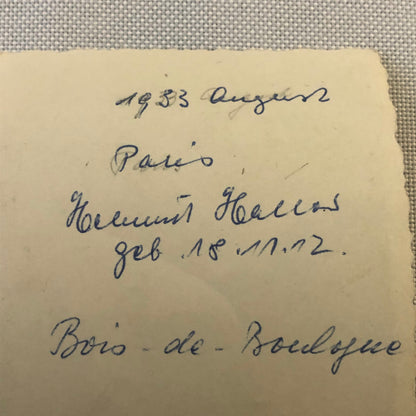 1933 August
Paris
Helmut
geb. 18.11.12.
Bois-de-Boulogne